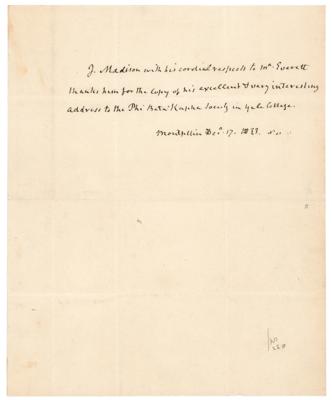 J. Madison with his cordial respects to Mr. Everett
thanks him for the copy of his excellent & very interesting
address to the Phi Beta Kappa Society in Yale College.
Montpellier Decr. 17. 1833